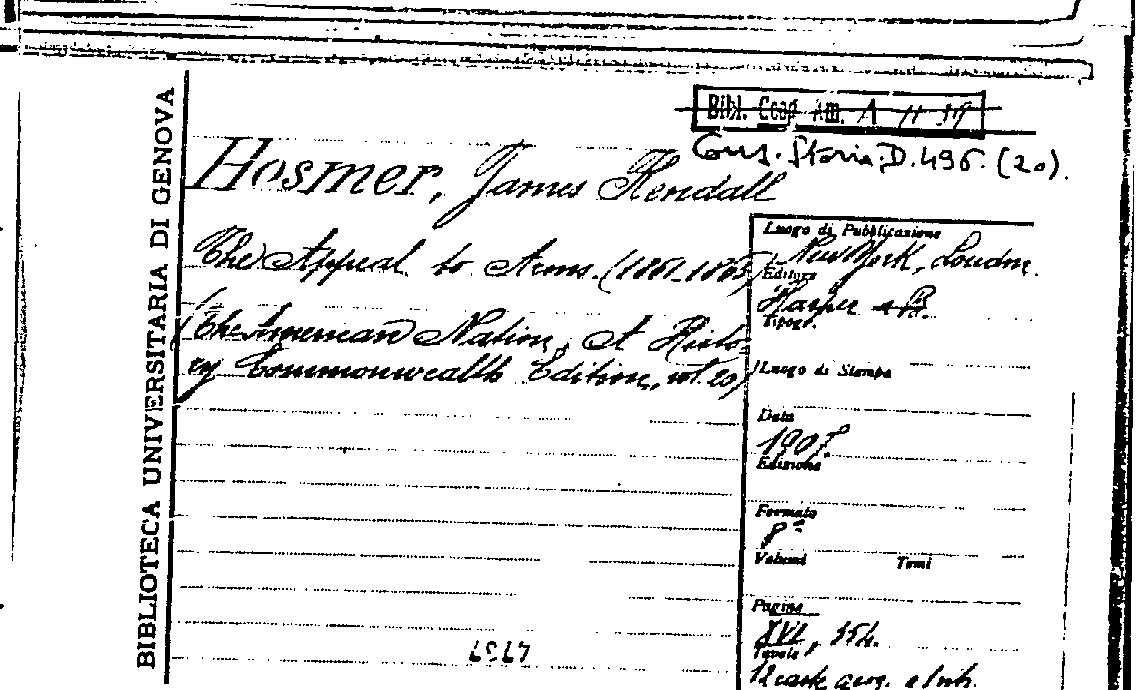 BIBLIOTECA UNIVERSITARIA DI GENOVA
Bibl. Coop Am. A 11 59
Cons. Storia. D. 496. (20).
Hosmer, James Kendall
The Appeal to Arms. (1861-1863)
(The American Nation, A Histo-
ry Commonwealth Edition, vol. 20)
Luogo di Pubblicazione
New York, London.
Editore
Harper & B.
Tipogr.
Luogo di Stampa
Data
1907.
Edizione
Formato
8°
Volumi Tomi
Pagine
XVI, 354.
Tavole
12 carte geog.